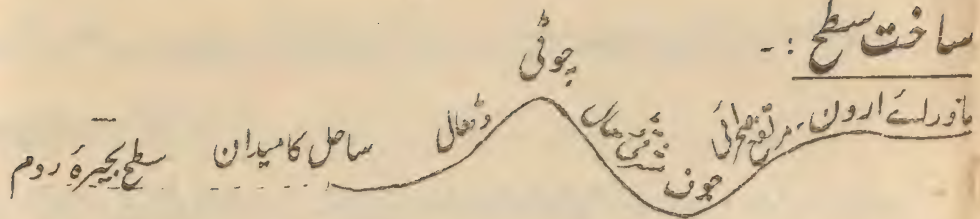 ساخت سطح :-
چوٹی
ماورائے اردن - مرتفع صحرائی
جوف
مشرقی ڈھال
ڈھال
ساحل کا میدان
سطح بحیرۂ روم